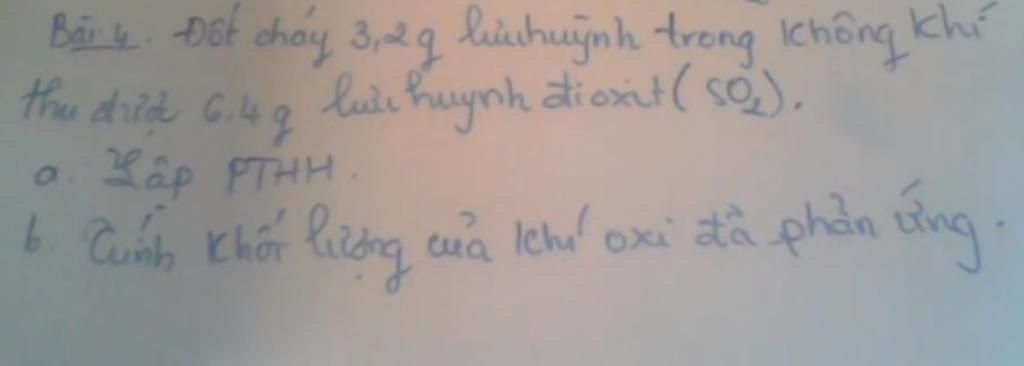 Bài 4. Đốt cháy 3,2g lưu huỳnh trong không khí
thu được 6.4g lưu huỳnh đioxit (SO2).
a. Lập PTHH.
b. Tính khối lượng của khí oxi đã phản ứng.